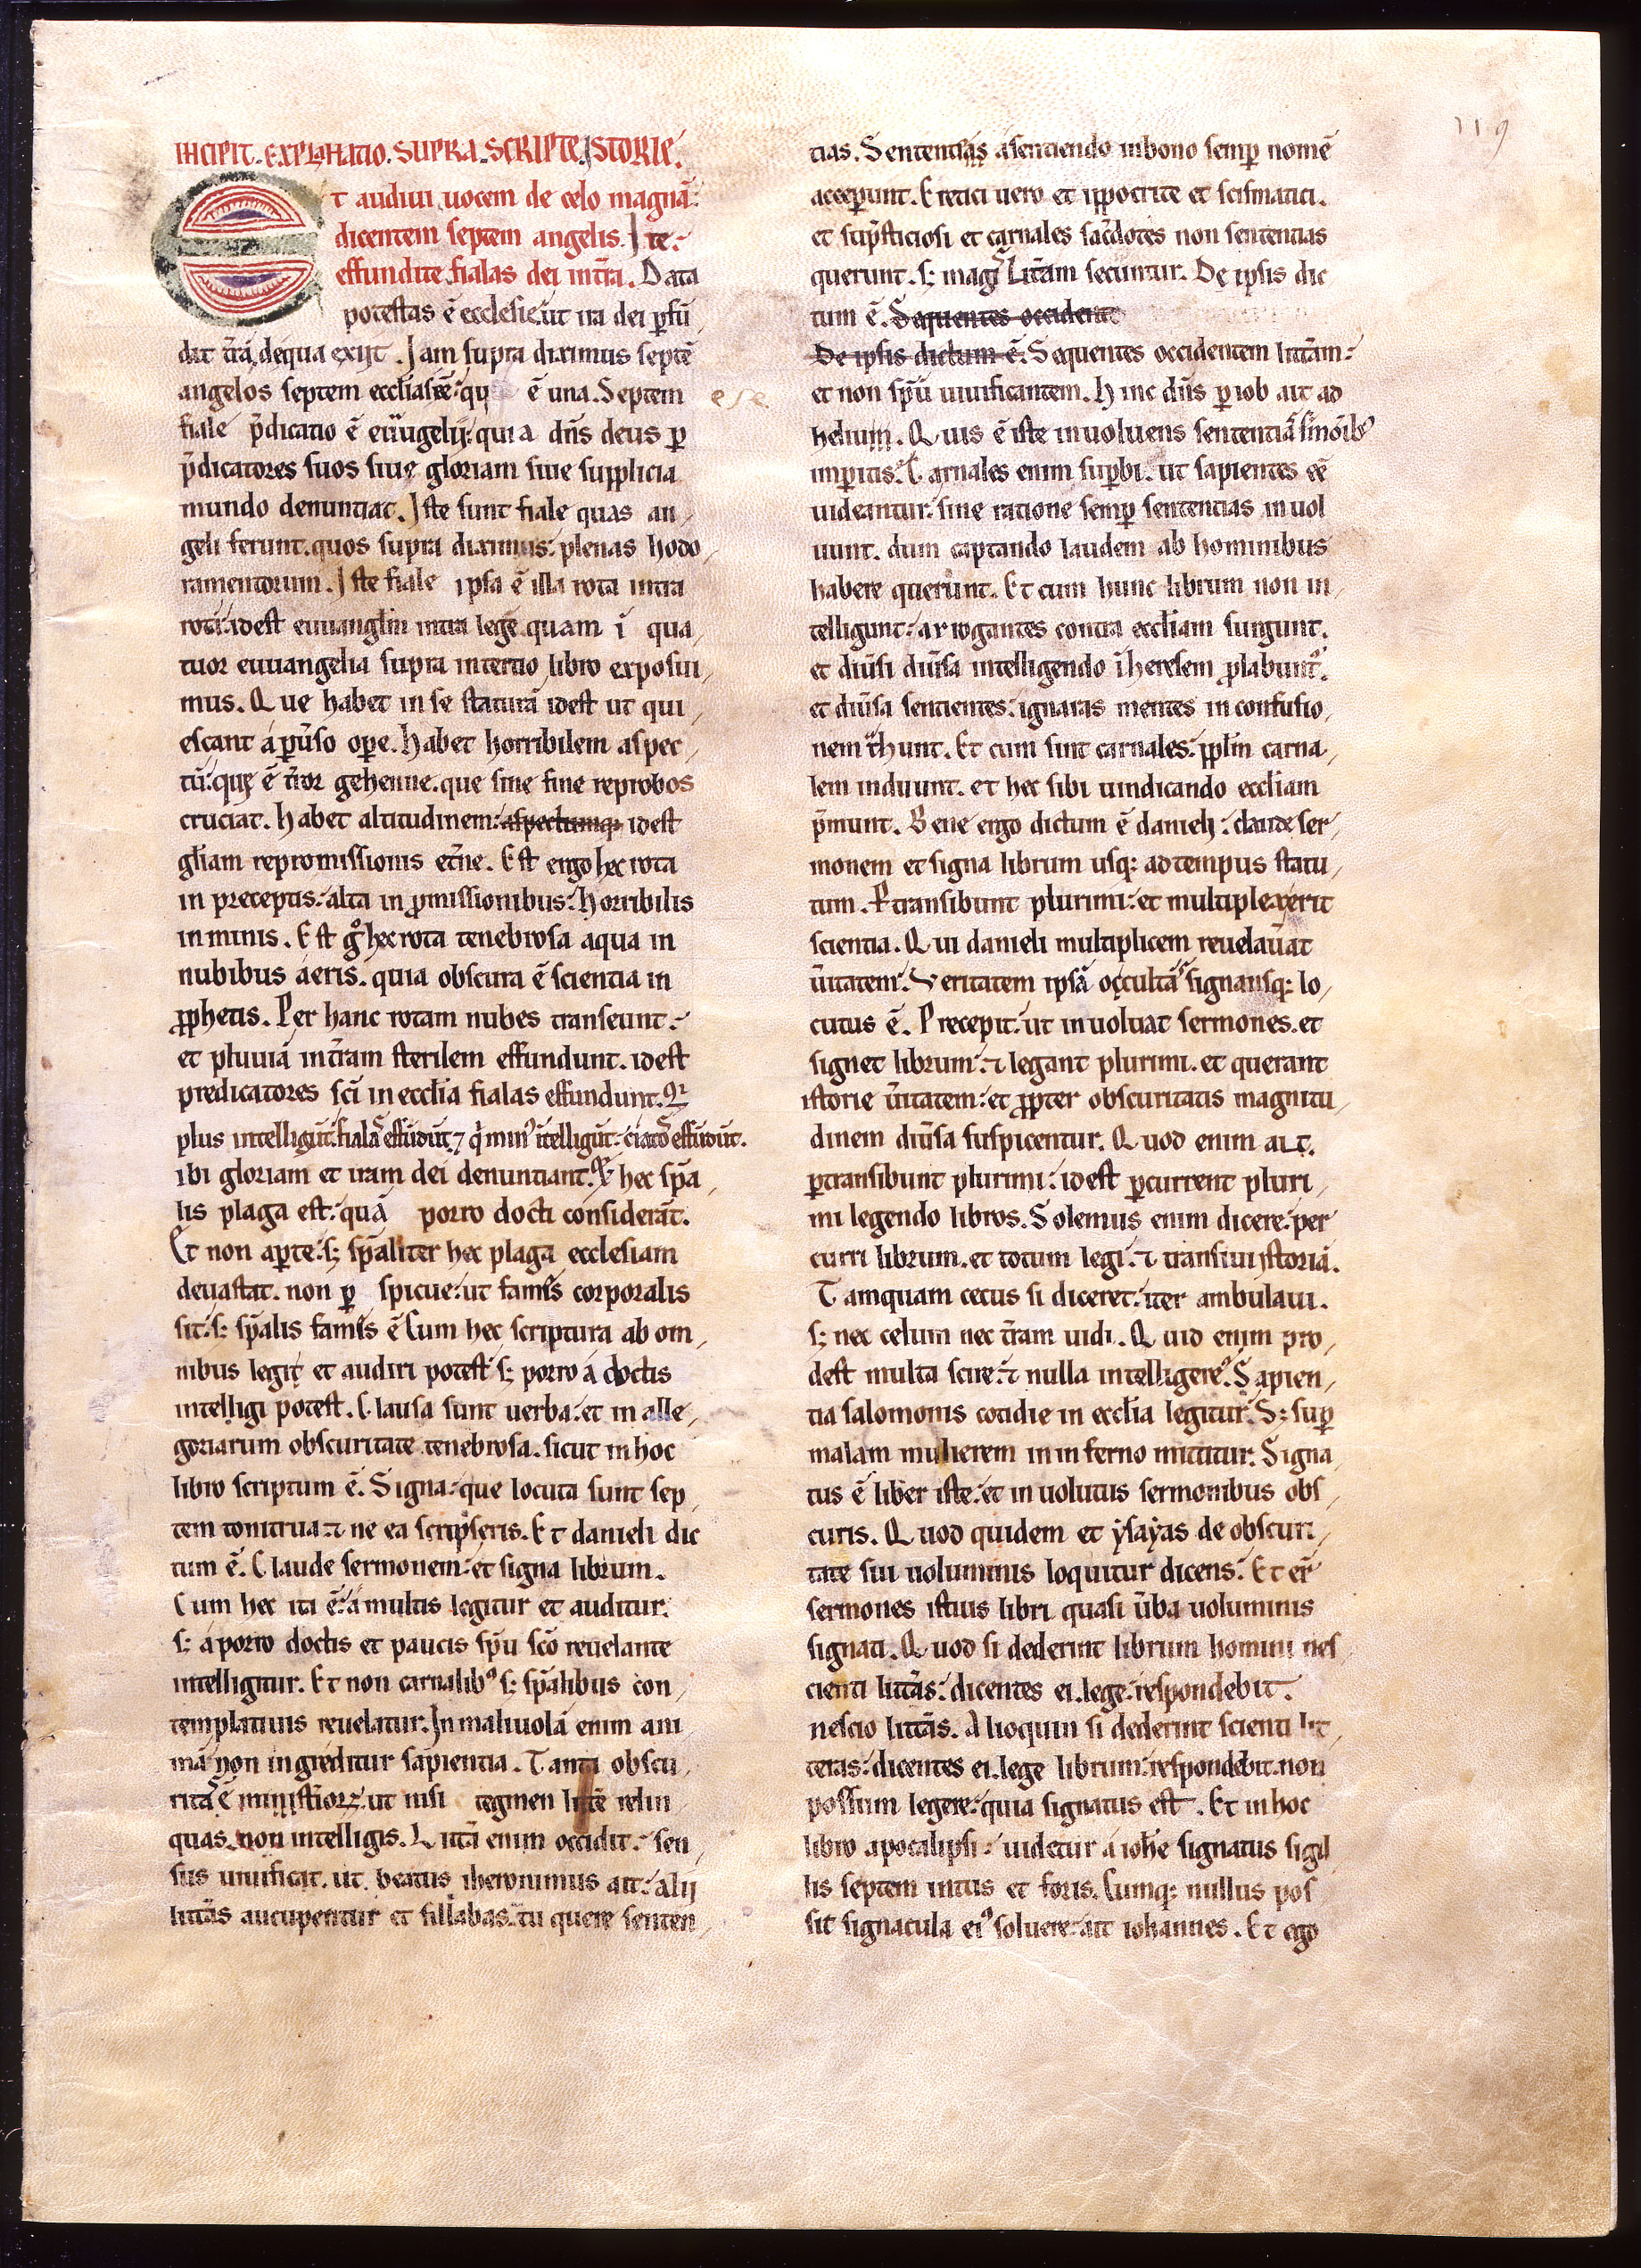 INCIPIT. EXPLANATIO. SUPRA. SCRIPTE. ISTORIE.
Et audiui uocem de celo magnā:
dicentem septem angelis. Ite.
effundite fialas dei int̄ra. Data
potestas ē ecclesie: ut ira dei ꝑfū
dat t̄rā, dequa exijt. Jam supra diximus septē
angelos septem ecclīas ēē: qu ē una. Septem
fiale p̄dicatio ē euuāgelij: quia dn̄s deus ꝑ
p̄dicatores suos siue gloriam siue supplicia
mundo denuntiat. Iste sunt fiale quas an
geli ferunt. quos supra diximus: plenas hodo
ramentorum. Iste fiale ipsa ē illa rota intra
rotā: idest euuanglīm intra legē. quam ī qua
tuor euuangelia supra intertio libro exposui
mus. Que habet in se staturā idest ut qui
escant á ꝑuso oꝑe. Habet horribilem aspec
tū: quę ē t̄ror gehenne. que sine fine reprobos
cruciat. Habet altitudinem: aspectumqꝫ idest
glīam repromissionis et̄ne. Est ergo hec rota
in preceptis: alta in ꝓmissionibus: horribilis
inminis. Est gͦ hec rota tenebrosa aqua in
nubibus áeris. quia obscura ē scientia in
ꝓphetis. Per hanc rotam nubes transeunt:
et pluuiā int̄ram sterilem effundunt. idest
predicatores scī in ecclīa fialas effundunt. Qͥ
plus intelligūt: fialā effūdūt. ⁊ qͥ minꝰ ītelligūt: effūdūt.
ibi gloriam et iram dei denuntiant. hec spā
lis plaga est: quā porro docti considerāt.
Et non aꝑte: sꝫ spāliter hec plaga ecclesiam
deuastat. non ꝑ spicue: ut famis corporalis
sit: sꝫ spālis famis ē Cum hec scriptura ab om
nibus legit et audiri potest: sꝫ porro á doctis
intelligi potest. Clausa sunt uerba: et in alle
goriarum obscuritate tenebrosa. sicut in hoc
libro scriptum ē. Signa: que locuta sunt sep
tem tonitrua: ⁊ ne ea scripseris. Et danieli dic
tum ē. Claude sermonem: et signa librum.
Cum hec iti ē: á multis legitur et auditur.
sꝫ á porro doctis et paucis sp̄u scō reuelante
intelligitur. Et non carnalibꝰ sꝫ spālibus con
templatiuis reuelatur. In maliuolā enim ani
mā non ingreditur sapientia. Tanta obscu
ritas ē ministeriorꝝ. ut nisi tegmen litt̄e relin
quas. non intelligis. Litt̄a enim occidit: sen
sus uiuificat. ut beatus iheronimus ait: alij
litt̄as aucupentur et sillabas. tu quere senten
tias. Sententias asentiendo inbono semꝑ nomē
acceꝑunt. Eretici uero et ippocrite et scismatici.
et suꝑsticiosi et carnales sac̄dotes non sententias
querunt. sꝫ magͥ Litt̄am secuntur. De ipsis dic
tum ē. Sequentes occident
De ipsis dictum ē: Sequentes occidentem litt̄am:
et non sp̄ū uiuificantem. Hinc dn̄s ꝑ iob ait ad
helium. Quis ē iste inuoluens sententiā ꝰ
imꝑitis? Carnales enim suꝑbi. ut sapientes ēē
uideantur: sine ratione semꝑ sententias inuol
uunt. dum captando laudem ab hominibus
habere querunt. Et cum hunc librum non in
telligunt: arrogantes contra ecclīam surgunt.
et diūsi diūsa intelligendo ī heresem ꝓlabuntꝰ.
et diūsa sentientes: ignaras mentes in confusio
nem t̄hunt. Et cum sint carnales: pplm̄ carna
lem induunt. et hec sibi uindicando ecclīam
p̄munt. Bene ergo dictum ē danieli: claude ser
monem et signa librum usqꝫ ad tempus statu
tum. Ꝑtransibunt plurimi: et multiplex erit
scientia. Qui danieli multiplicem reuelau̅at
u̅itatem: Veritatem ipsā occultā signansqꝫ lo
cutus ē. Precepit: ut inuoluat sermones. et
signet librum: ⁊ legant plurimi. et querant
istorie u̅itatem: et ꝓpter obscuritatis magnitu
dinem diūsa suspicentur. Quod enim ait.
ꝑtransibunt plurimi: idest ꝑcurrent pluri
mi legendo libros. Solemus enim dicere: per
curri librum. et totum legi: ⁊ transiui istoriā.
Tamquam cecus si diceret: iter ambulaui.
sꝫ nec celum nec t̄ram uidi. Quid enim pro
dest multa scire: ⁊ nulla intelligere? Sapien
tia salomonis cotidie in ecclīa legitur. Sꝫ suꝑ
malam mulierem in in ferno mittitur. Signa
tus ē liber iste: et inuolutus sermonibus obs
curis. Quod quidem et ẏsaẏas de obscuri
tate sui uoluminis loquitur dicens: Et er̄
sermones istius libri quasi u̅ba uoluminis
signati. Quod si dederint librum homini nes
cienti litt̄as: dicentes ei. lege: respondebit.
nescio litt̄as. Alioquin si dederint scienti lit
teras: dicentes ei. lege librum: respondebit. non
possum legere: quia signatus est. Et in hoc
libro apocalipsi: uidetur á ioh̄e signatus sigil
lis septem intus et foris. Cumqꝫ nullus pos
sit signacula eiꝰ soluere: ait iohannes. Et ego